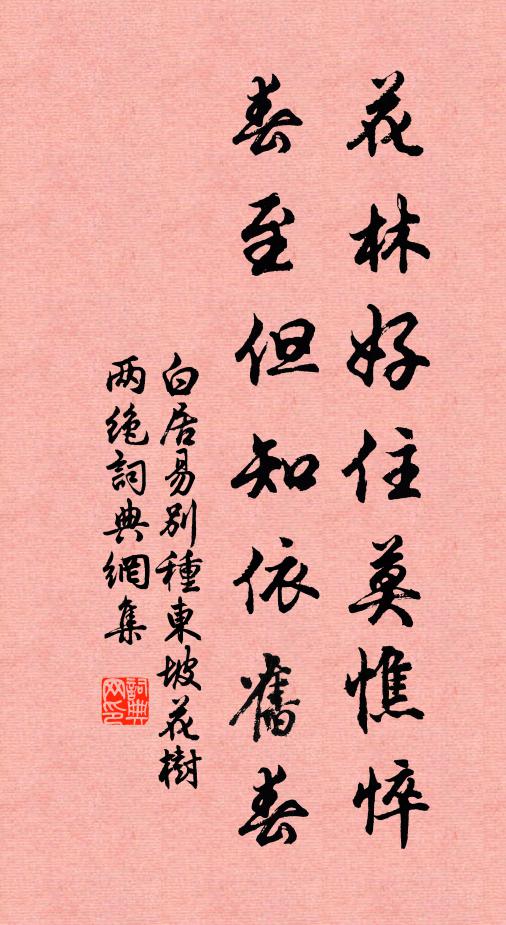 花林好住莫憔悴
春至但知依舊春
白居易別種東坡花樹
两绝詞典網集
詞典网印